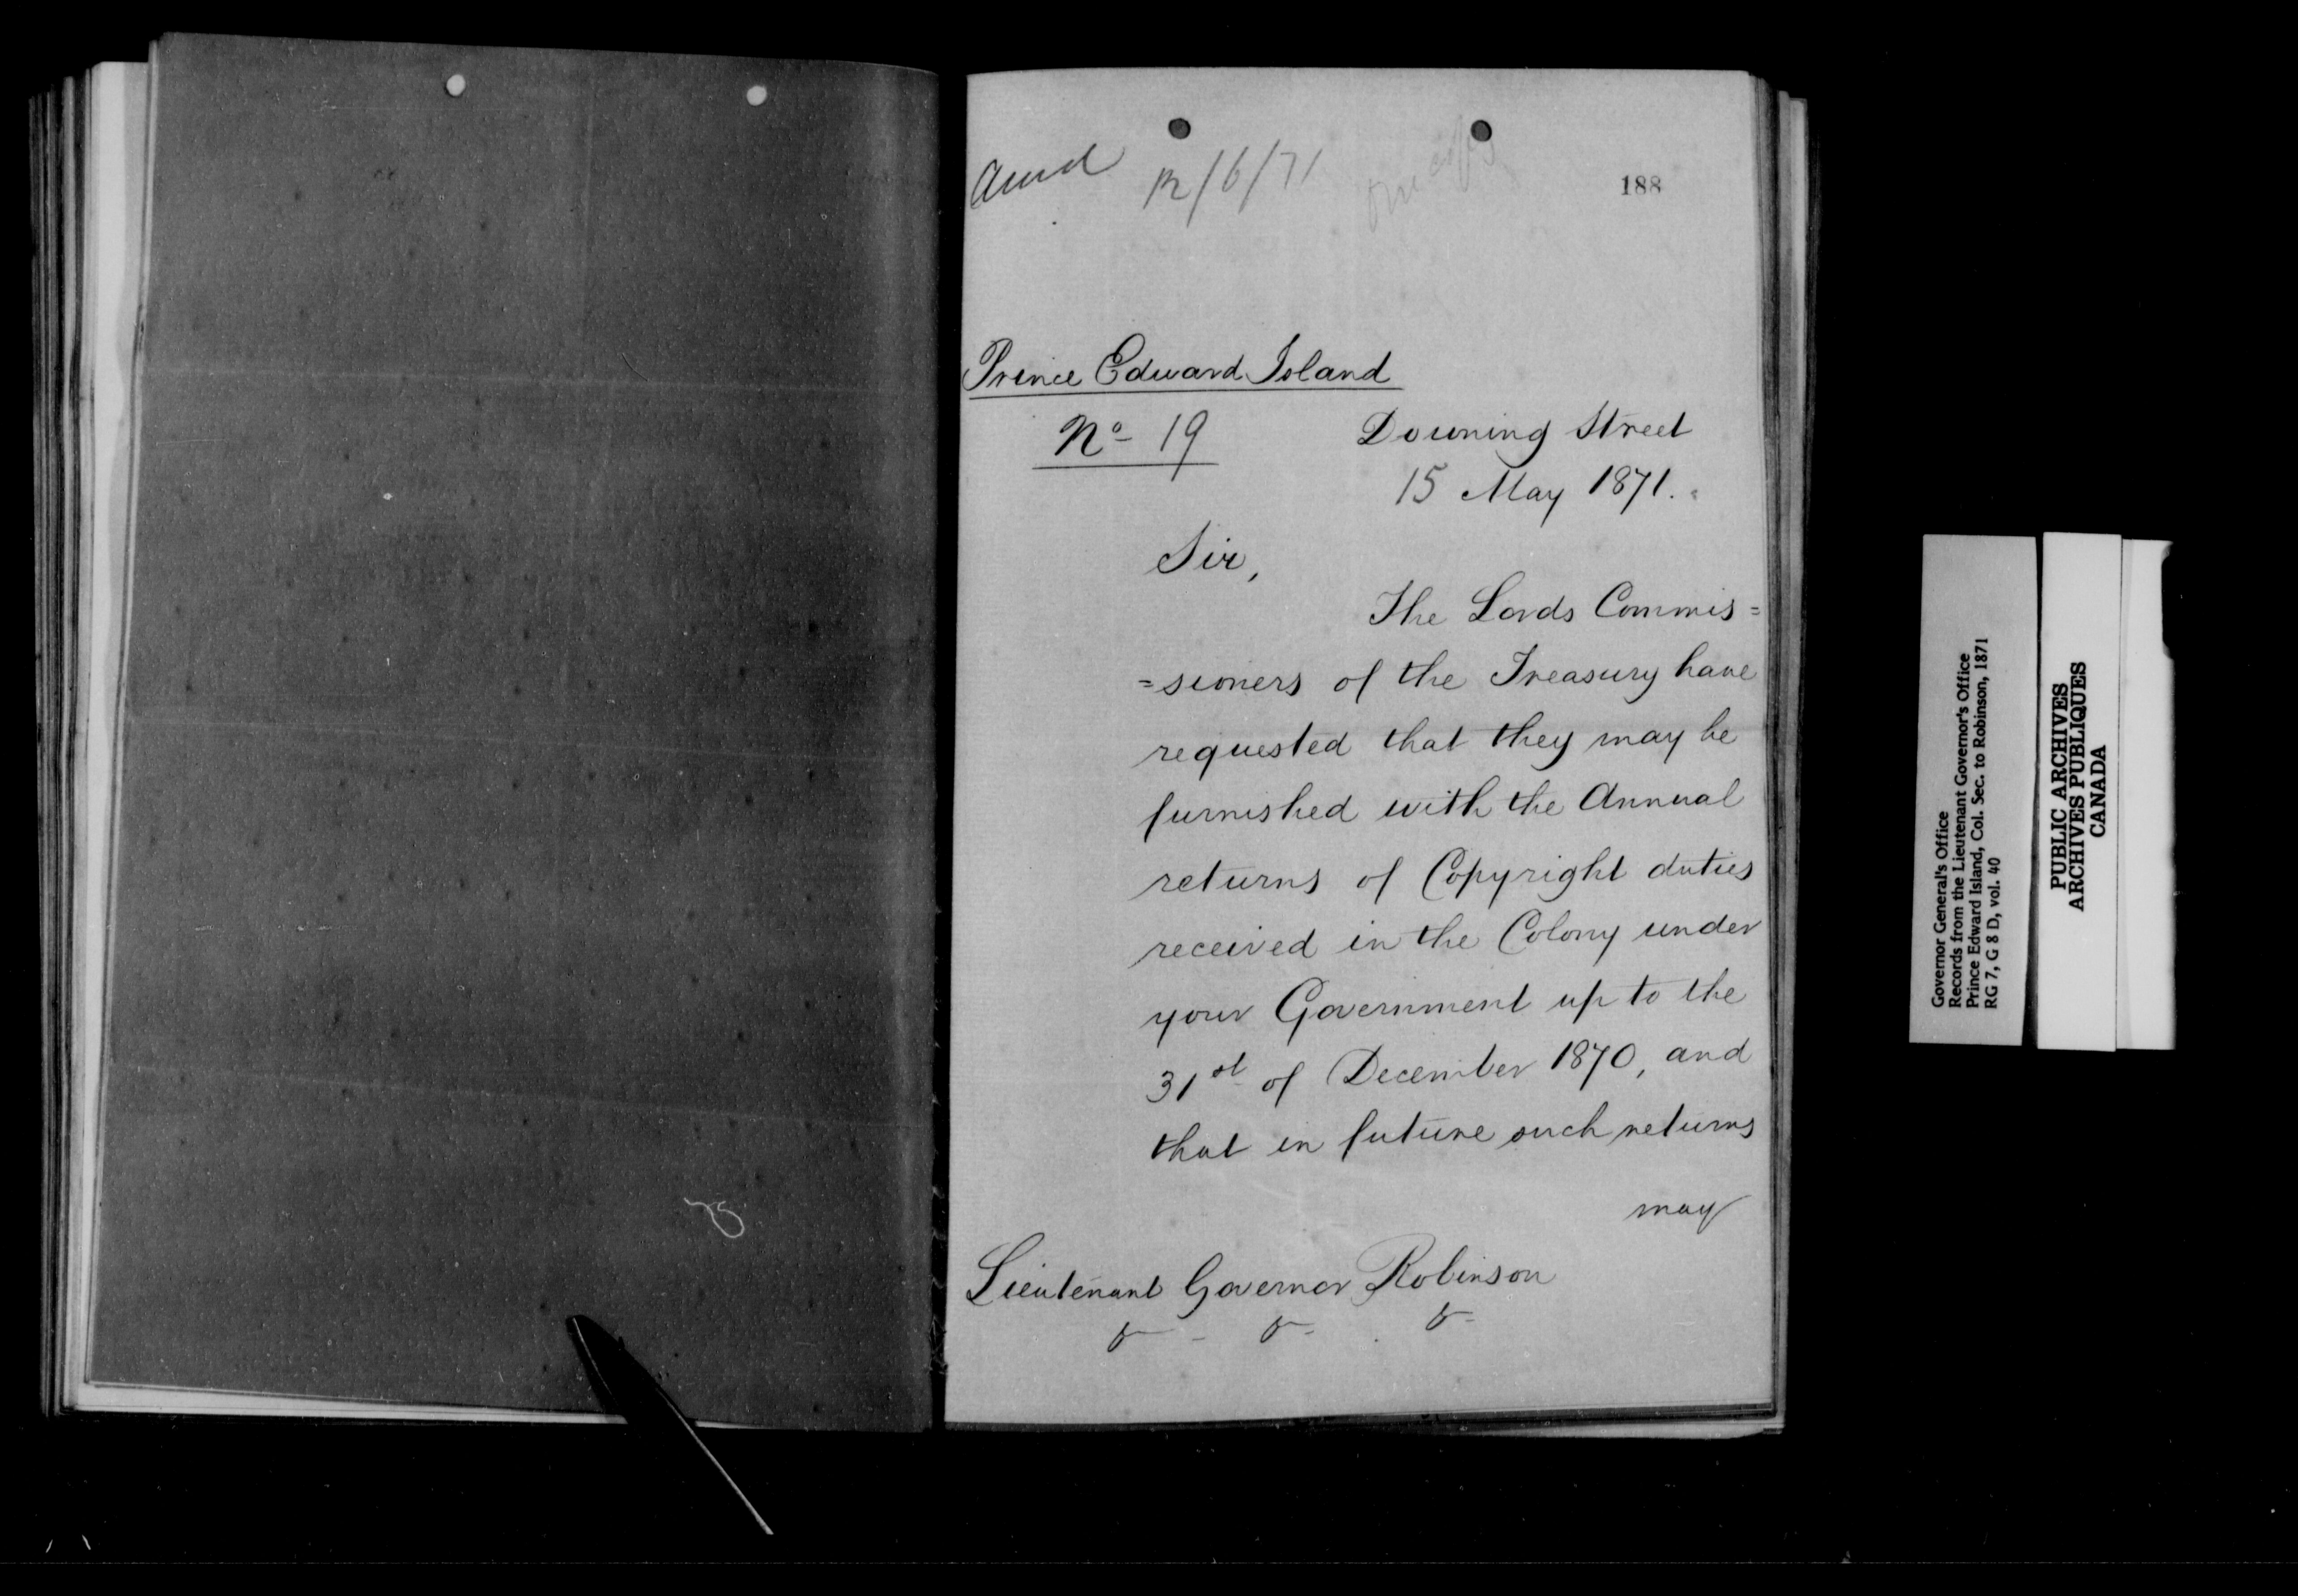 12/6/71
188
Prince Edward Island
No 19
Downing Street
15 May 1871.
Sir,
The Lords Commis=
=sioners of the Treasury have
requested that they may be
furnished with the Annual
returns of Copyright duties
received in the Colony under
your Government up to the
31st of December 1870, and
that in future such returns
may
Lieutenant Governor Robinson
Governor General's Office
Records from the Lieutenant Governor's Office
Prince Edward Island, Col. Sec. to Robinson, 1871
RG 7, G 8 D, vol. 40
PUBLIC ARCHIVES
ARCHIVES PUBLIQUES
CANADA